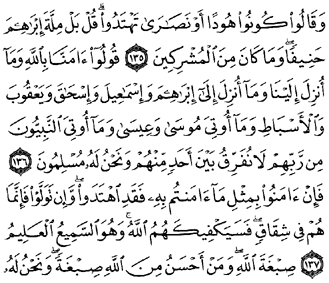 وَقَالُوا۟ كُونُوا۟ هُودًا أَوْ نَصَٰرَىٰ تَهْتَدُوا۟ ۗ قُلْ بَلْ مِلَّةَ إِبْرَٰهِـۧمَ
حَنِيفًا ۖ وَمَا كَانَ مِنَ ٱلْمُشْرِكِينَ ١٣٥ قُولُوٓا۟ ءَامَنَّا بِٱللَّهِ وَمَآ
أُنزِلَ إِلَيْنَا وَمَآ أُنزِلَ إِلَىٰٓ إِبْرَٰهِـۧمَ وَإِسْمَٰعِيلَ وَإِسْحَٰقَ وَيَعْقُوبَ
وَٱلْأَسْبَاطِ وَمَآ أُوتِىَ مُوسَىٰ وَعِيسَىٰ وَمَآ أُوتِىَ ٱلنَّبِيُّونَ
مِن رَّبِّهِمْ لَا نُفَرِّقُ بَيْنَ أَحَدٍ مِّنْهُمْ وَنَحْنُ لَهُۥ مُسْلِمُونَ ١٣٦
فَإِنْ ءَامَنُوا۟ بِمِثْلِ مَآ ءَامَنتُم بِهِۦ فَقَدِ ٱهْتَدَوا۟ ۖ وَّإِن تَوَلَّوْا۟ فَإِنَّمَا
هُمْ فِى شِقَاقٍ ۖ فَسَيَكْفِيكَهُمُ ٱللَّهُ ۚ وَهُوَ ٱلسَّمِيعُ ٱلْعَلِيمُ
١٣٧ صِبْغَةَ ٱللَّهِ ۖ وَمَنْ أَحْسَنُ مِنَ ٱللَّهِ صِبْغَةً ۖ وَنَحْنُ لَهُۥ